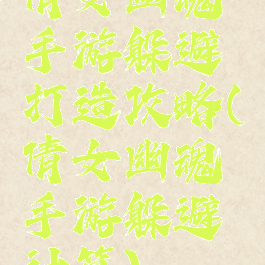 倩女幽魂
手游躲避
打造攻略(
倩女幽魂
手游躲避